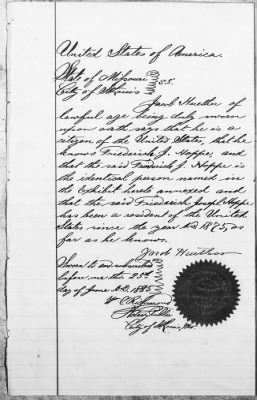 United States of America.
State of Missouri
City of St Louis } S.S.
Jacob Huether of
lawful age being duly sworn
upon oath says that he is a
citizen of the United States, that he
knows Friedrich J. Hoppe, and
that the said Friedrich J. Hoppe is
the identical person named in
the Exhibit hereto annexed and
that the said Friedrich Joseph Hoppe
has been a resident of the United
States since the year AD 1875, as
far as he knows.
Jacob Huether
Sworn to and subscribed
before me this
day of June A.D. 1885
Wm C Richmond
Notary Public
City of St Louis, Mo.